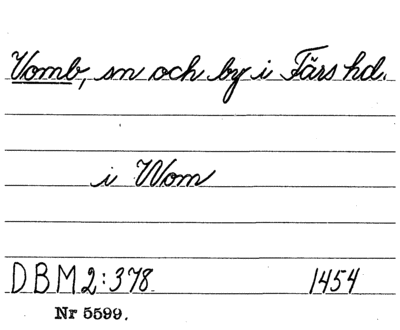 Vomb, sn och by i Färs hd.
i Wom
DBM 2:378 1454
Nr 5599.